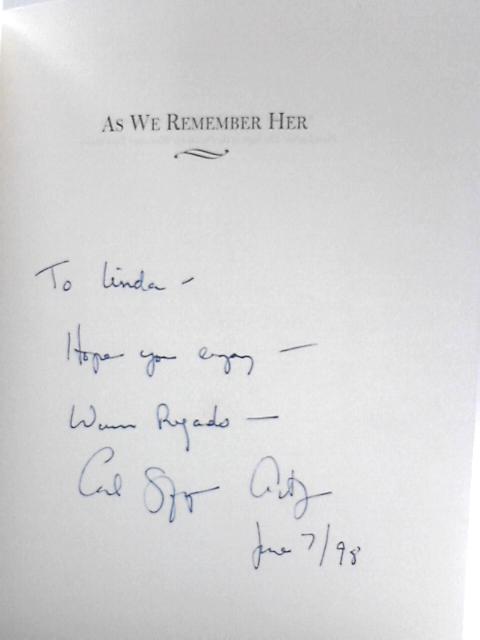 AS WE REMEMBER HER
To Linda -
Hope you enjoy -
Warm Regards -
Carl Sferrazza Anthony
June 7/98